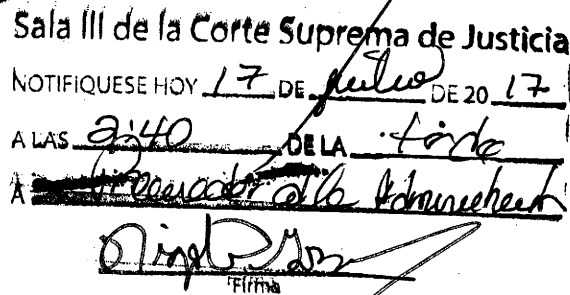 Sala III de la Corte Suprema de Justicia
NOTIFIQUESE HOY 17 DE julio DE 20 17
A LAS 2:40 DE LA tarde
A Procurador de la Administración
Firma